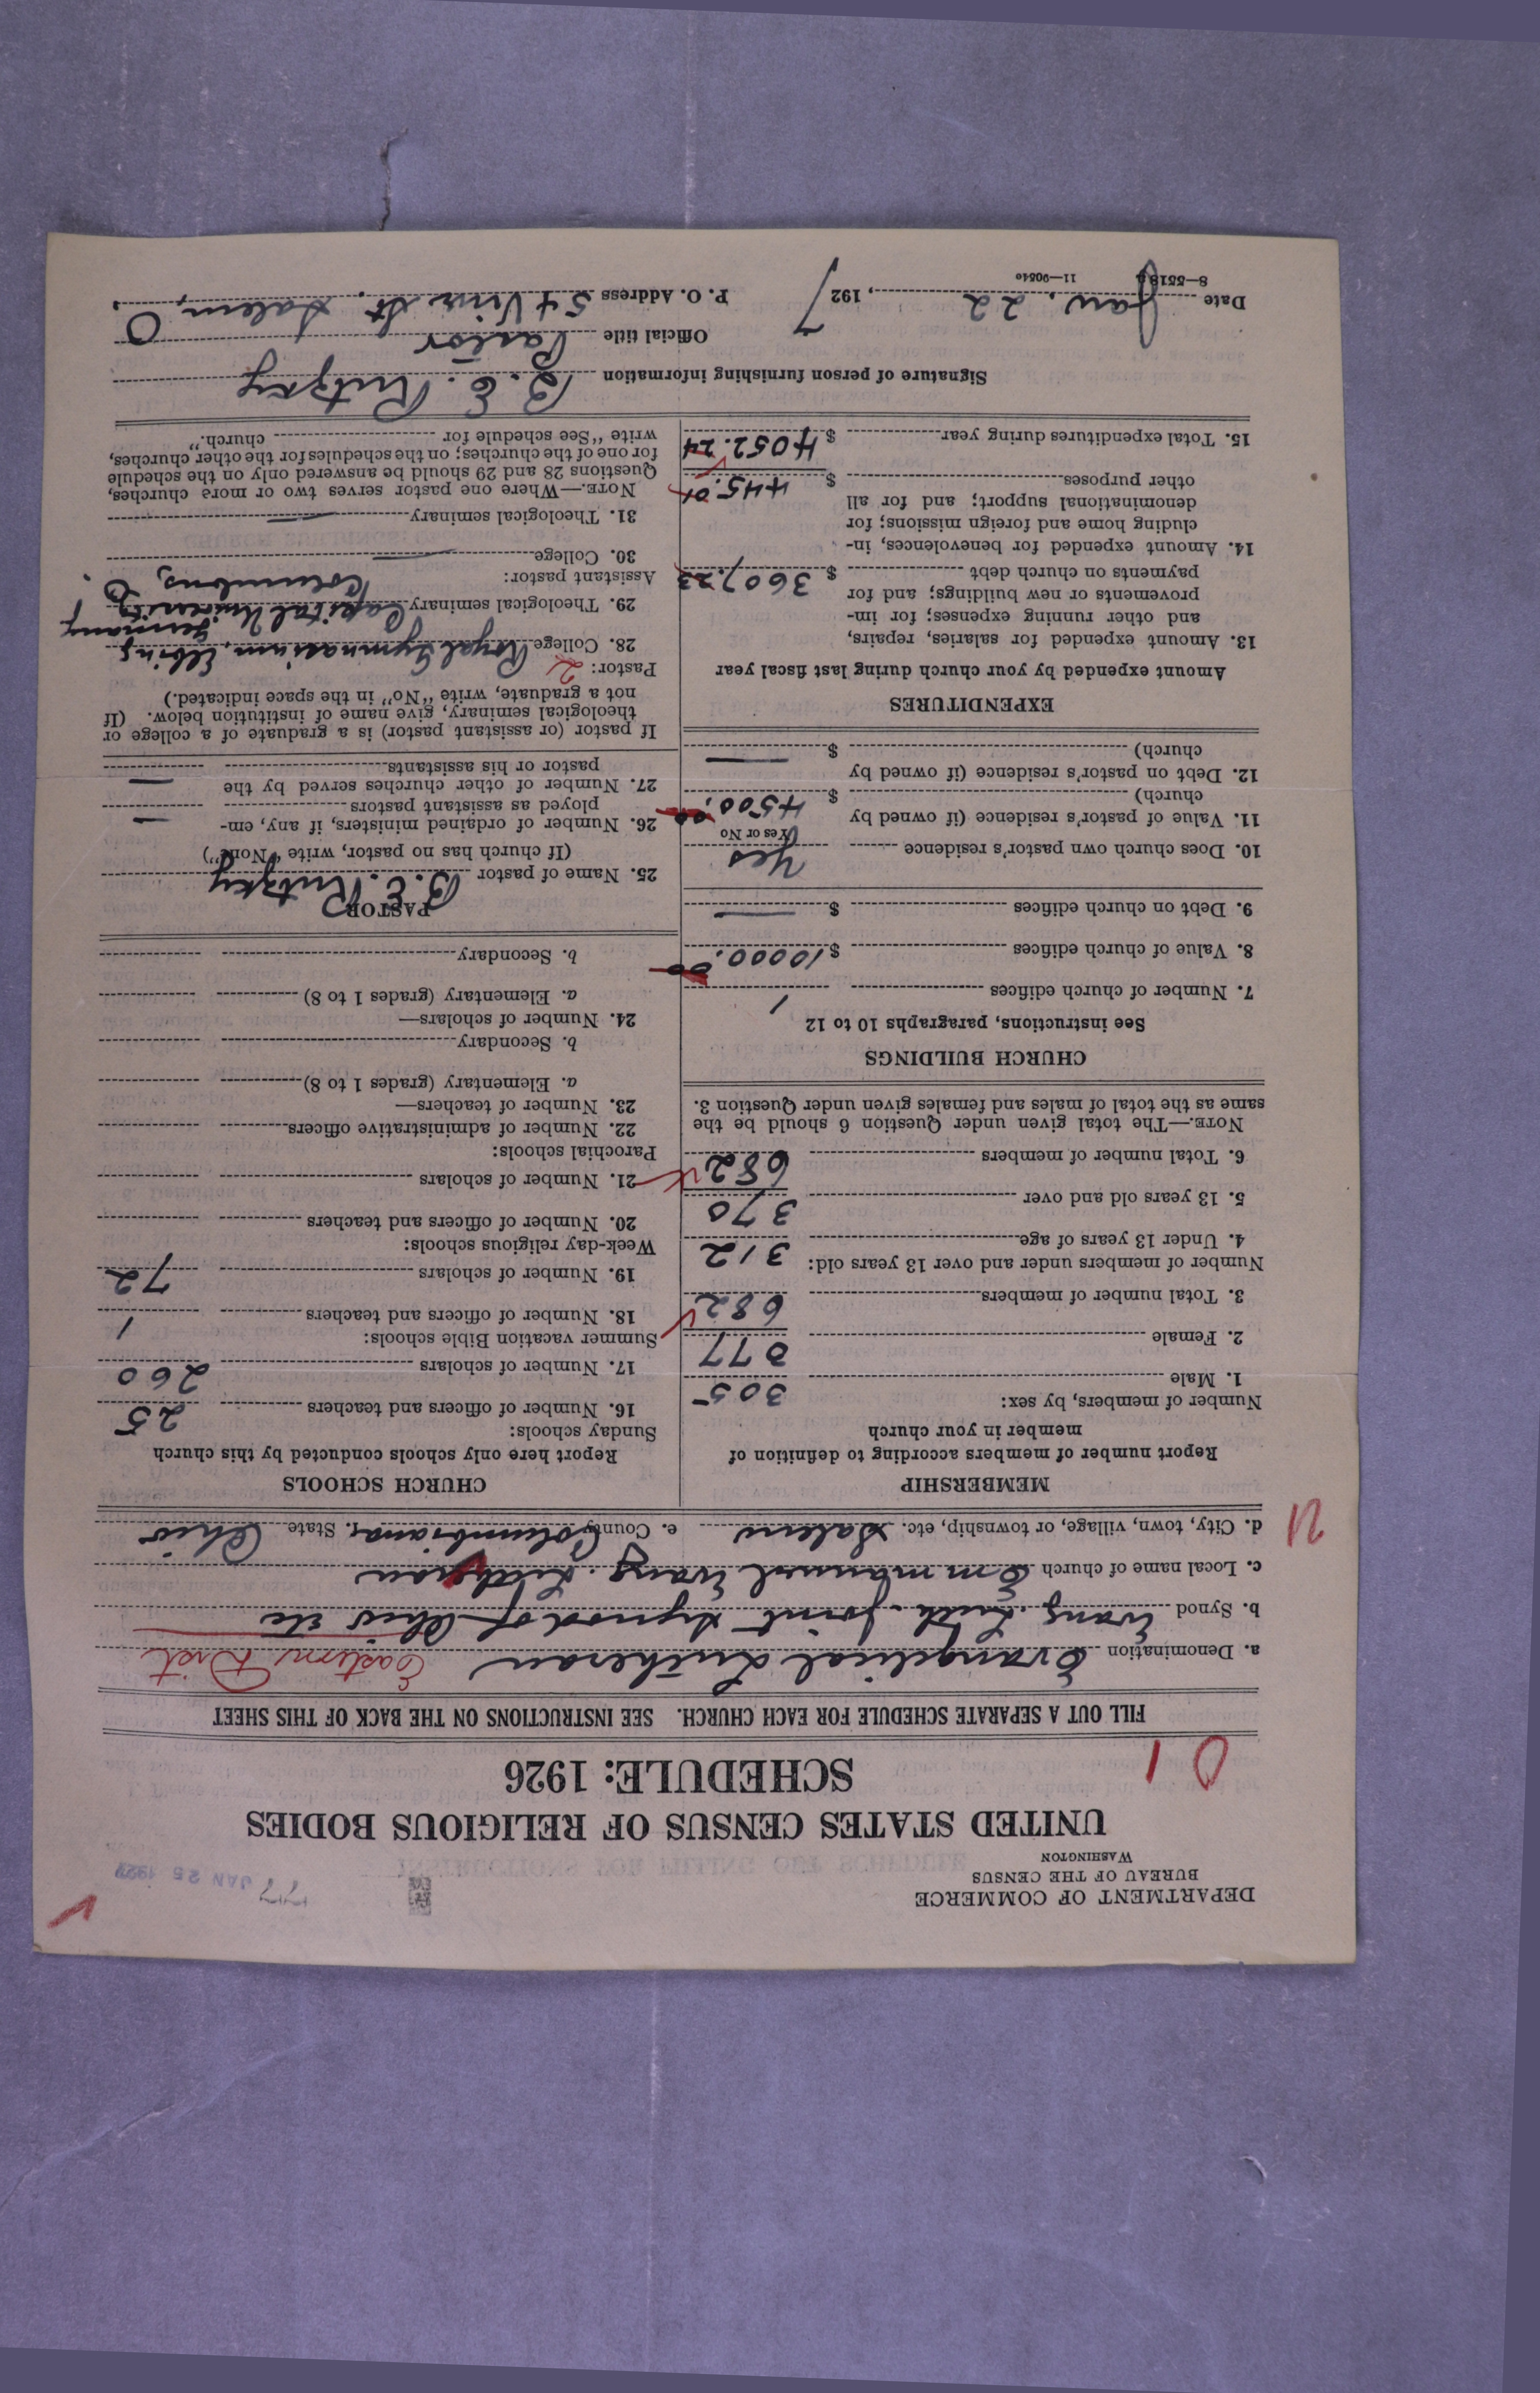 DEPARTMENT OF COMMERCE
BUREAU OF THE CENSUS
WASHINGTON
77
JAN 25 1927
UNITED STATES CENSUS OF RELIGIOUS BODIES
SCHEDULE: 1926
0 1
FILL OUT A SEPARATE SCHEDULE FOR EACH CHURCH. SEE INSTRUCTIONS ON THE BACK OF THIS SHEET
a. Denomination Evangelical Lutheran Eastern Dist
b. Synod Evang. Luth. Joint Synod of Ohio etc
c. Local name of church Emmanuel Evang. Lutheran
d. City, town, village, or township, etc. Salem e. County Columbiana, State Ohio
MEMBERSHIP
Report number of members according to definition of
member in your church
Number of members, by sex:
1. Male 305
2. Female 377
3. Total number of members 682
Number of members under and over 13 years old:
4. Under 13 years of age 312
5. 13 years old and over 370
6. Total number of members 682
NOTE.—The total given under Question 6 should be the
same as the total of males and females given under Question 3.
CHURCH BUILDINGS
See instructions, paragraphs 10 to 12
7. Number of church edifices 1
8. Value of church edifices $10000.00
9. Debt on church edifices $ —
10. Does church own pastor's residence Yes
Yes or No
11. Value of pastor's residence (if owned by
church) $ 4500.00
12. Debt on pastor's residence (if owned by
church) $ —
EXPENDITURES
Amount expended by your church during last fiscal year
13. Amount expended for salaries, repairs,
and other running expenses; for im-
provements or new buildings; and for
payments on church debt $ 3607.23
14. Amount expended for benevolences, in-
cluding home and foreign missions; for
denominational support; and for all
other purposes $ 445.01
15. Total expenditures during year $ 4052.24
CHURCH SCHOOLS
Report here only schools conducted by this church
Sunday schools:
16. Number of officers and teachers 25
17. Number of scholars 260
Summer vacation Bible schools:
18. Number of officers and teachers 1
19. Number of scholars 72
Week-day religious schools:
20. Number of officers and teachers
21. Number of scholars
Parochial schools:
22. Number of administrative officers
23. Number of teachers—
a. Elementary (grades 1 to 8)
b. Secondary
24. Number of scholars—
a. Elementary (grades 1 to 8)
b. Secondary
PASTOR
25. Name of pastor B. E. Rutzky
(If church has no pastor, write "None")
26. Number of ordained ministers, if any, em-
ployed as assistant pastors —
27. Number of other churches served by the
pastor or his assistants —
If pastor (or assistant pastor) is a graduate of a college or
theological seminary, give name of institution below. (If
not a graduate, write "No" in the space indicated.)
Pastor: 2
28. College Royal Gymnasium, Elbing, Germany
29. Theological seminary Capital University Columbus, O.
Assistant pastor:
30. College —
31. Theological seminary —
NOTE.—Where one pastor serves two or more churches,
Questions 28 and 29 should be answered only on the schedule
for one of the churches; on the schedules for the other churches,
write "See schedule for church."
Signature of person furnishing information B. E. Rutzky
Official title Pastor
Date Jan. 22, 1927 P. O. Address 54 Vine St. Salem, O.
8—5518 11—9054